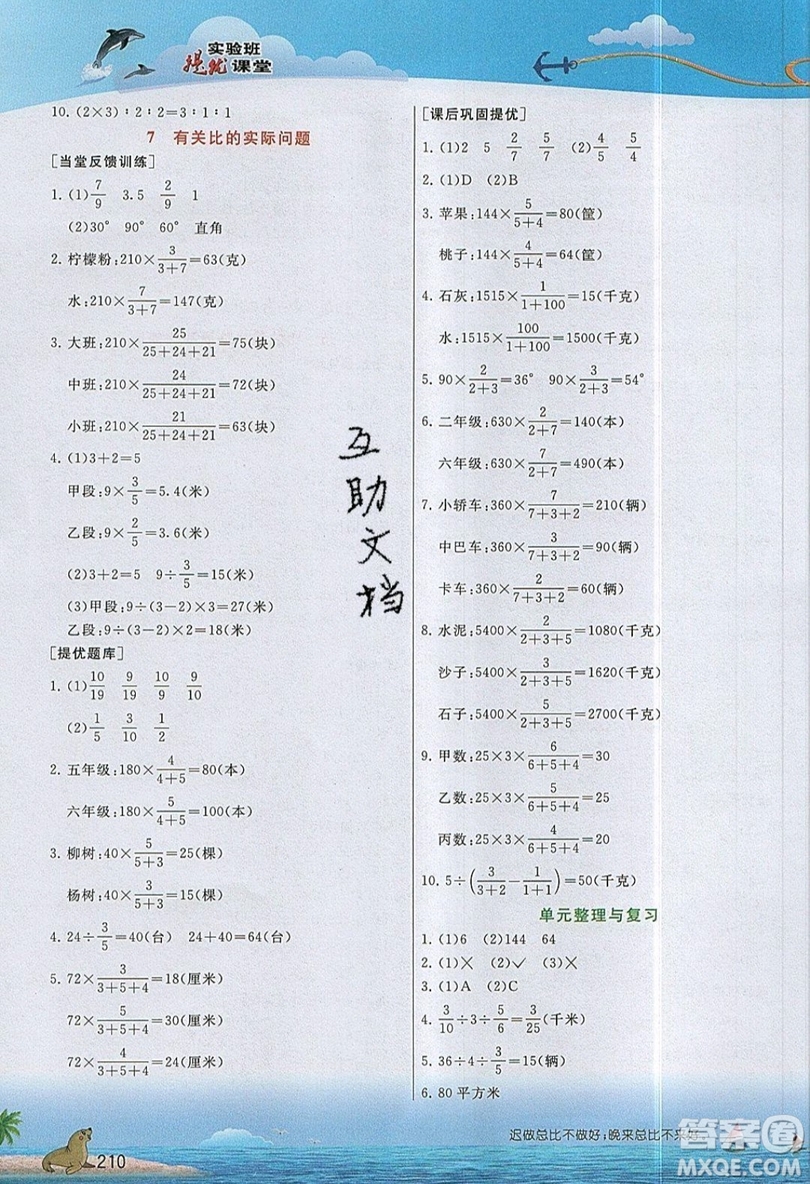 实验班
提优课堂
10. (2×3)∶2∶2=3∶1∶1
7 有关比的实际问题
[当堂反馈训练]
1. (1) 7/9 3.5 2/9 1
(2)30° 90° 60° 直角
2. 柠檬粉:210×3/(3+7)=63(克)
水:210×7/(3+7)=147(克)
3. 大班:210×25/(25+24+21)=75(块)
中班:210×24/(25+24+21)=72(块)
小班:210×21/(25+24+21)=63(块)
4. (1)3+2=5
甲段:9×3/5=5.4(米)
乙段:9×2/5=3.6(米)
(2)3+2=5 9÷3/5=15(米)
(3)甲段:9÷(3-2)×3=27(米)
乙段:9÷(3-2)×2=18(米)
[提优题库]
1. (1) 10/19 9/19 10/9 9/10
(2) 1/5 3/10 1/2
2. 五年级:180×4/(4+5)=80(本)
六年级:180×5/(4+5)=100(本)
3. 柳树:40×5/(5+3)=25(棵)
杨树:40×3/(5+3)=15(棵)
4. 24÷3/5=40(台) 24+40=64(台)
5. 72×3/(3+5+4)=18(厘米)
72×5/(3+5+4)=30(厘米)
72×4/(3+5+4)=24(厘米)
210
互助文档
[课后巩固提优]
1. (1)2 5 2/7 5/7 (2) 4/5 5/4
2. (1)D (2)B
3. 苹果:144×5/(5+4)=80(筐)
桃子:144×4/(5+4)=64(筐)
4. 石灰:1515×1/(1+100)=15(千克)
水:1515×100/(1+100)=1500(千克)
5. 90×2/(2+3)=36° 90×3/(2+3)=54°
6. 二年级:630×2/(2+7)=140(本)
六年级:630×7/(2+7)=490(本)
7. 小轿车:360×7/(7+3+2)=210(辆)
中巴车:360×3/(7+3+2)=90(辆)
卡车:360×2/(7+3+2)=60(辆)
8. 水泥:5400×2/(2+3+5)=1080(千克)
沙子:5400×3/(2+3+5)=1620(千克)
石子:5400×5/(2+3+5)=2700(千克)
9. 甲数:25×3×6/(6+5+4)=30
乙数:25×3×5/(6+5+4)=25
丙数:25×3×4/(6+5+4)=20
10. 5÷(3/(3+2)-1/(1+1))=50(千克)
单元整理与复习
1. (1)6 (2)144 64
2. (1)× (2)✓ (3)×
3. (1)A (2)C
4. 3/10÷3÷5/6=3/25(千米)
5. 36÷4÷3/5=15(辆)
6. 80平方米
迟做总比不做好;晚来总比不来好
答案圈
MXQE.COM